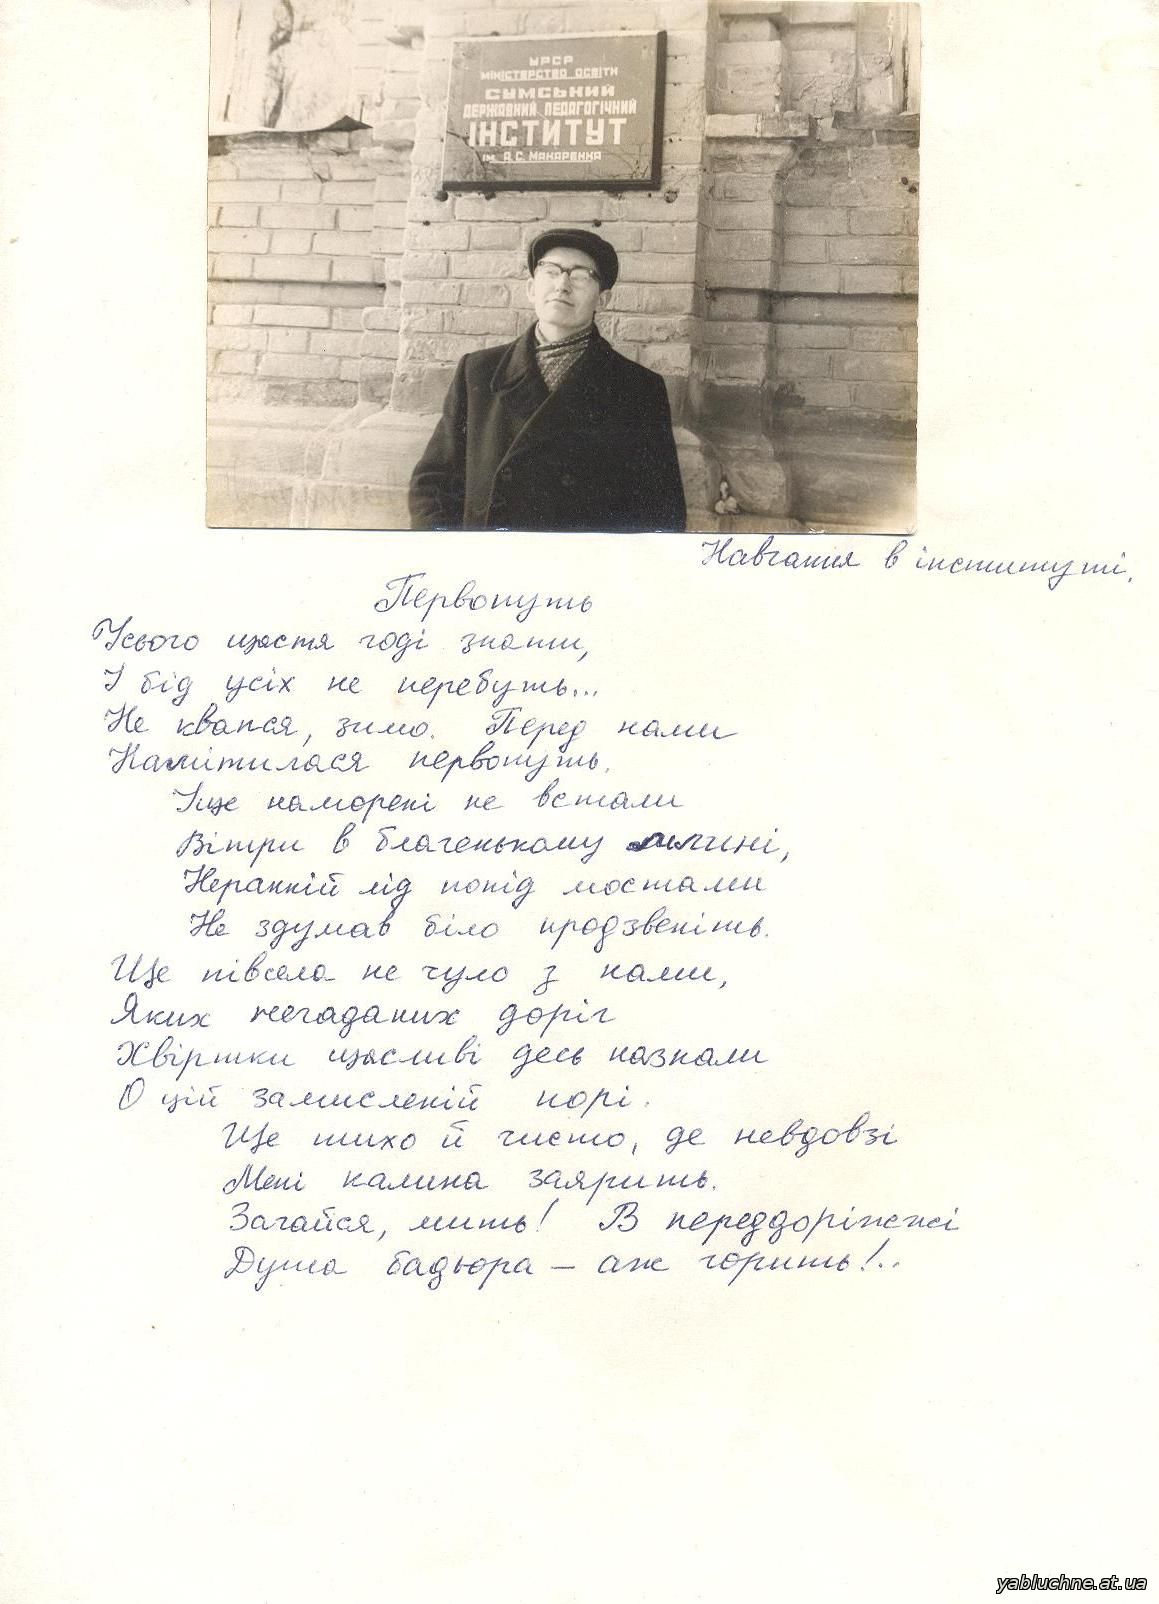 УРСР
МІНІСТЕРСТВО ОСВІТИ
СУМСЬКИЙ
ДЕРЖАВНИЙ ПЕДАГОГІЧНИЙ
ІНСТИТУТ
ІМ. А.С. МАКАРЕНКА
Навчання в інституті.
Первопуть
Усього щастя годі знати,
І бід усіх не перебуть...
Не квапся, зимо. Перед нами
Намітилася первопуть.
Іще наморені не встали
Вітри в благенькому
Неранній лід попід мостами
Не здумав біло продзвеніть.
Ще півсела не чуло з нами,
Яких негаданих доріг
Хвіртки щасливі десь назнали
О цій замисленій порі.
Ще тихо й чисто, де невдовзі
Мені калина заярить.
Загайся, мить! В переддоріжжі
Душа бадьора – аж горить!..
yabluchne.at.ua